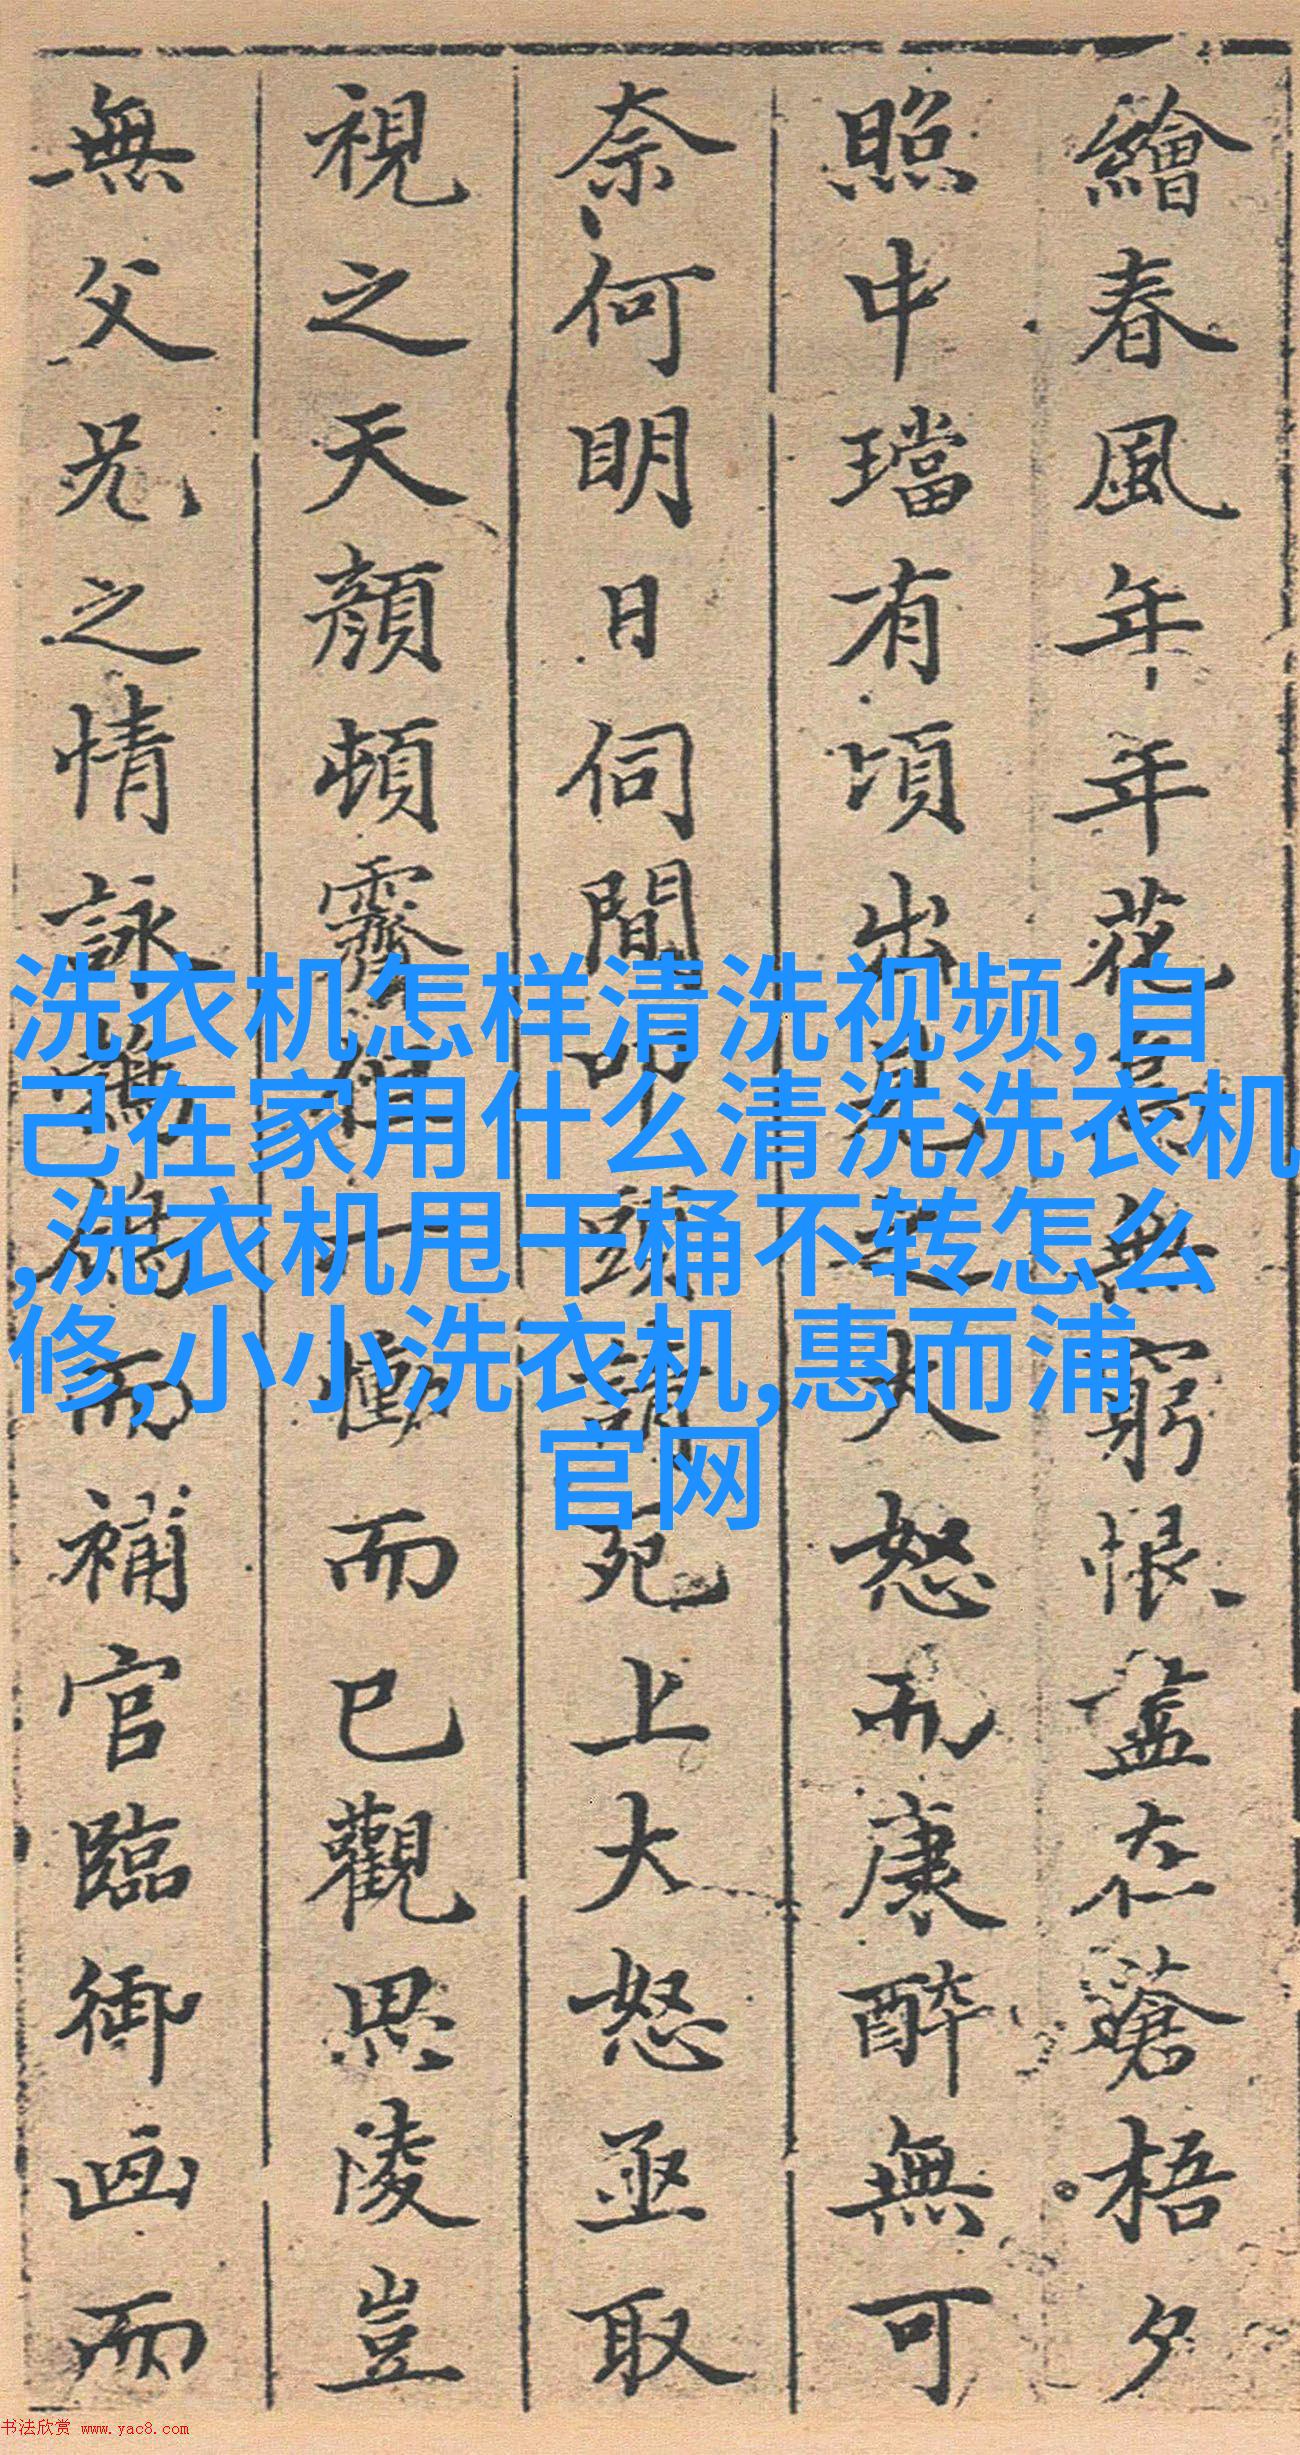 繪春風年年花鳥無窮恨盡在蒼梧夕
照中璫有頃出見之大怒而康醉無可
奈何明日伺間叩頭請死上大怒亟取
視之天顏頓霽但一慟而已觀思陵豈
無父兄之情詠鴒而補官臨御画而
洗衣机怎样清洗视频,自
己在家用什么清洗洗衣机
,洗衣机甩干桶不转怎么
修,小小洗衣机,惠而浦
官网
书法欣赏 www.yac8.com